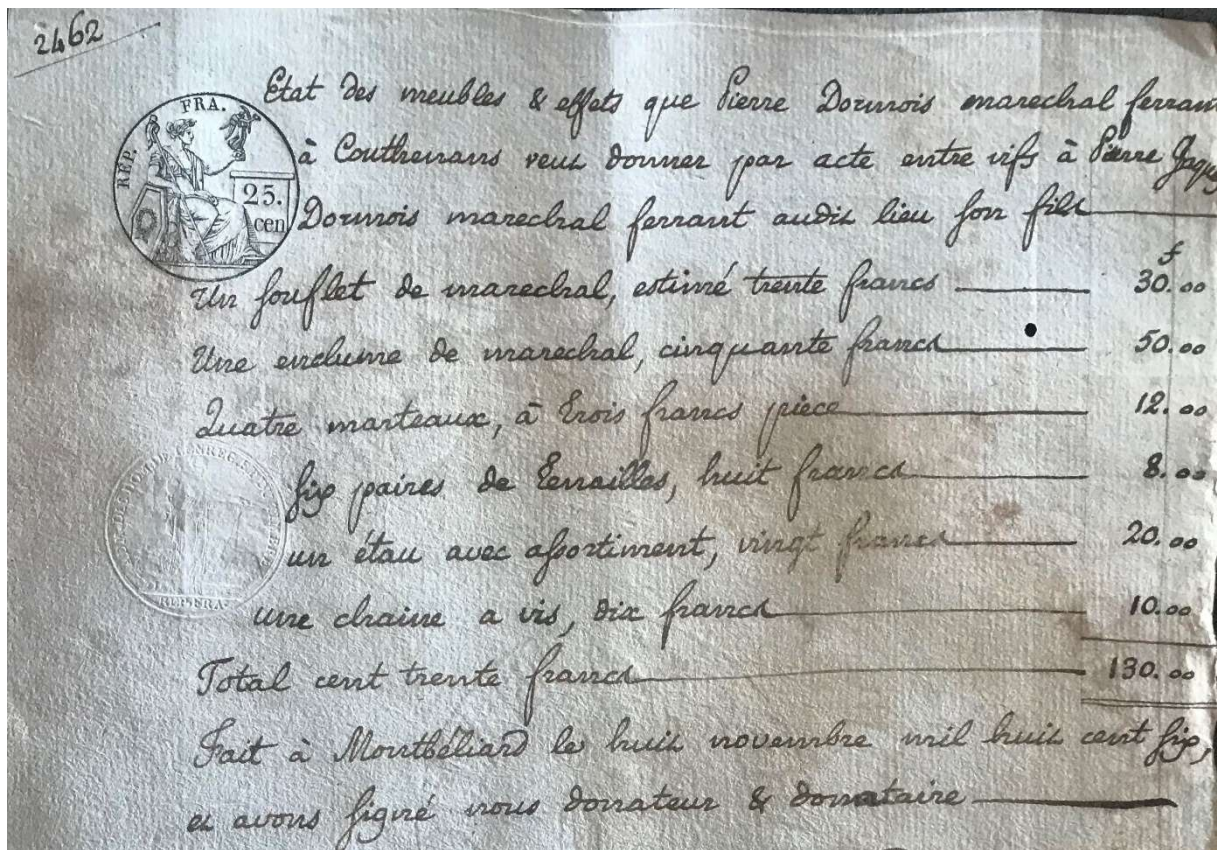 2462
REP. FRA.
25.
cen
Etat des meubles & effets que Pierre Dormois marechal ferran
à Couthenans veut donner par acte entre vifs à Pierre Jaques
Dormois marechal ferrant audit lieu son fils
f
Un souflet de marechal, estimé trente francs 30.00
Une enclume de marechal, cinquante francs 50.00
Quatre marteaux, à trois francs piece 12.00
six paires de tenailles, huit francs 8.00
un étau avec assortiment, vingt francs 20.00
une chaine a vis, dix francs 10.00
Total cent trente francs 130.00
REP. FRA.
Fait à Montbéliard le huit novembre mil huit cent six,
et avons signé nous donateur & donataire